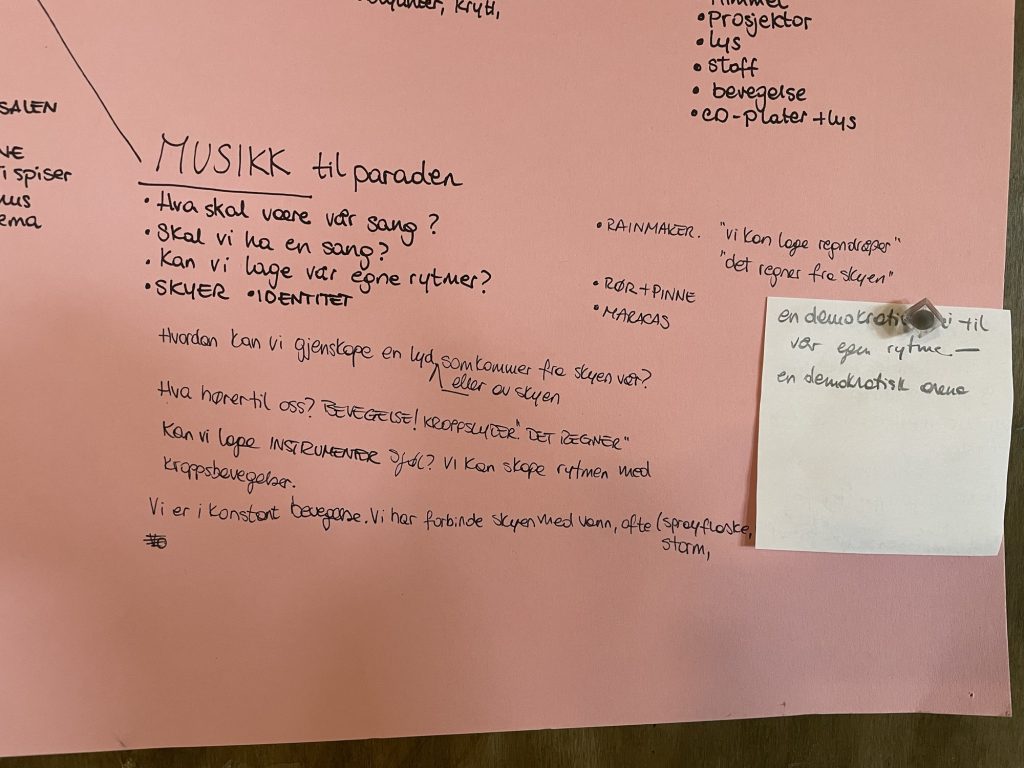 krytt,
Himmel
• Prosjektor
• lys
• stoff
• bevegelse
• CD-plater + lys
SALEN
NE
i spiser
hus
ema
MUSIKK til paraden
• Hva skal være vår sang?
• Skal vi ha en sang?
• Kan vi lage vår egne rytmer?
• SKYER • IDENTITET
• RAINMAKER. "vi kan lage regndråper"
"det regner fra skyen"
• RØR + PINNE
• MARACAS
Hvordan kan vi gjenskape en lyd som kommer fra skyen vår?
eller av skyen
Hva hører til oss? BEVEGELSE! KROPPSLYDER "DET REGNER"
Kan vi lage INSTRUMENTER sjøl? Vi kan skape rytmen med
kroppsbevegelser.
Vi er i konstant bevegelse. Vi har forbinde skyen med vann, ofte (sprayflaske,
storm,
en demokratisk vi til
vår egen rytme —
en demokratisk arena